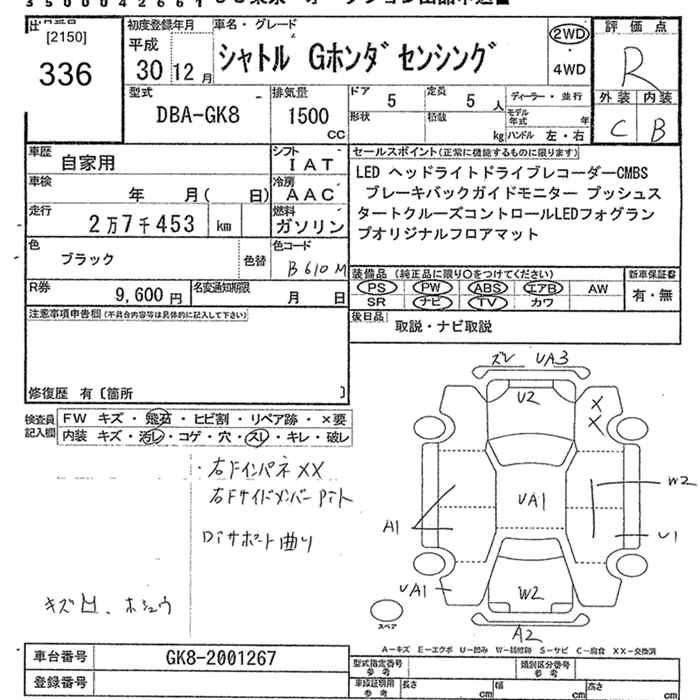 [2150]
336
初度登録年月
平成
30年12月
車名・グレード
シャトル Gホンダセンシング
2WD
・
4WD
評価点
R
外装 内装
C B
型式
DBA-GK8
排気量
1500
CC
ドア
5
定員
5人
ディーラー・並行
形状
積載
kg
モデル年式
年
ハンドル 左・右
車歴
自家用
シフト
IAT
車検
年 月( 日)
冷房
AAC
走行
2万7千453 km
燃料
ガソリン
色
ブラック
色替
色コード
B610M
R券
9,600円
名変通知期限
月 日
セールスポイント(正常に機能するものに限ります)
LED ヘッドライトドライブレコーダーCMBS
ブレーキバックガイドモニター プッシュス
タートクルーズコントロールLEDフォグラン
プオリジナルフロアマット
装備品 (純正品に限り○をつけてください)
新車保証書
PS PW ABS エアB AW
SR ナビ TV カワ
有・無
後日品
取説・ナビ取説
注意事項申告欄(不具合内容等は具体的に記入して下さい)
修復歴 有〔箇所 〕
検査員
記入欄
FW キズ・飛石・ヒビ割・リペア跡・×要
内装 キズ・汚レ・コゲ・穴・スレ・キレ・破レ
・右FインパネXX
右Fサイドメンバー
Diサポート曲り
キズ凹、ホシュウ
ズレ UA3
U2
X
X
UA1
W2
A1
U1
UA1
W2
A2
スペア
A-キズ E-エクボ U-凹み W-補修跡 S-サビ C-腐食 XX-交換済
車台番号
GK8-2001267
登録番号
型式指定番号
参考
類別区分番号
参考
車検証明用
参考
長さ cm
幅 cm
高さ cm